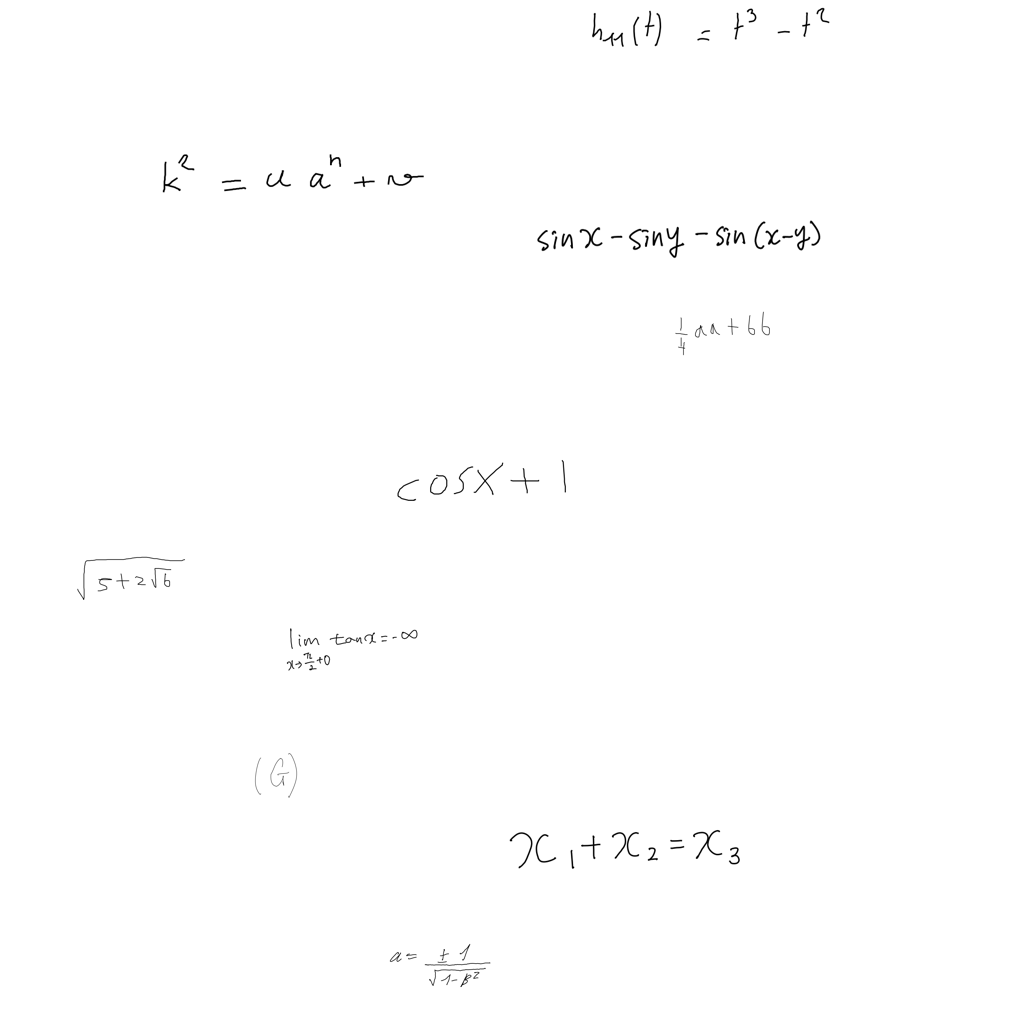 h₁₁(t) = t³ - t²
k² = u aⁿ + v
sin x - sin y - sin (x-y)
\frac{1}{4} aa + bb
cos x + 1
\sqrt{5+2\sqrt{6}}
\lim_{x→\frac{π}{2}+0} tan x = -∞
(G)
x₁ + x₂ = x₃
a = \frac{±1}{\sqrt{1-β²}}